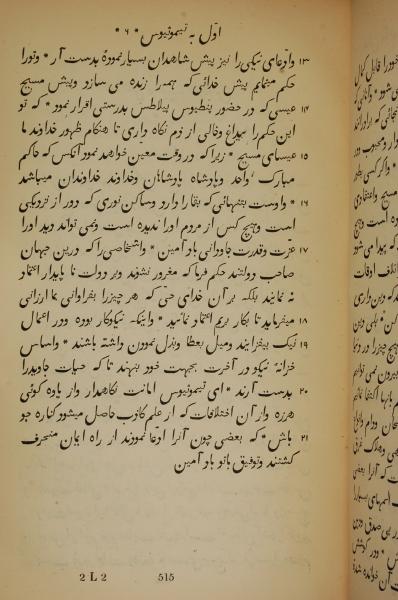 اوّل به تیموتیوس * ۶ *
۱۳ وادّعای نیکی را نیز پیش شاهدان بسیار نموده بدست آر * وتورا
حکم مینمایم پیش خدائی که همه را زنده می سازد وپیش مسیح
۱۴ عیسی که در حضور پنطیوس پیلاطس بدرستی اقرار نمود * که تو
این حکم را بیداغ وخالی از ذم نگاه داری تا هنگام ظهور خداوند ما
۱۵ عیسای مسیح * زیرا که در وقت معین خواهد نمود آنکس که حاکم
مبارک واحد وپادشاه پادشاهان وخداوند خداوندان میباشد
۱۶ * واوست بتنهائی که بقا را دارد وساکن نوری که دور از نزدیکی
است وهیچ کس از مردم اورا ندیده است ونمی تواند دید اورا
۱۷ عزّت وقدرت جاودانی باد آمین * واشخاصی را که درین جهان
صاحب دولتند حکم فرما که مغرور نشوند وبر دولت نا پایدار اعتماد
نه نمایند بلکه بر آن خدائی حی که هر چیز را بفراوانی بما ارزانی
۱۸ میفرماید تا بکار بریم اعتماد نمائید * واینکه نیکوکار بوده ودر اعمال
۱۹ نیک بیفزایند ومیل بعطا وبذل نمودن داشته باشند * واساس
خزانهٔ نیکو در آخرت بجهت خود بنهند تا که حیات جاوید را
۲۰ بدست آرند * ای تیموتیوس امانت نگاهدار واز یاوه کوئی
هرزه واز آن اختلافات که از علم کاذب حاصل میشود کناره جو
۲۱ باش * که بعضی چون آنرا ادّعا نمودند از راه ایمان منحرف
کشتند وتوفیق باتو باد آمین
2 L 2 515